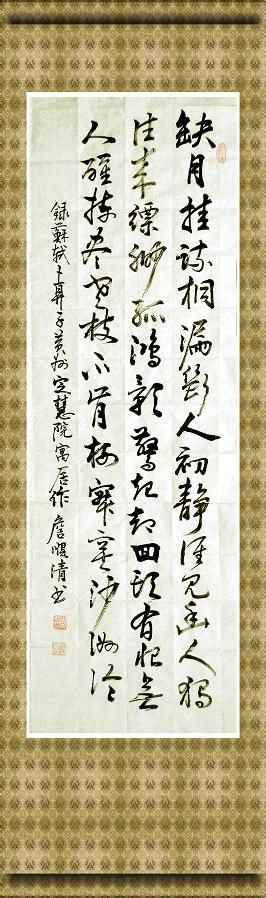 缺月挂疏桐漏断人初静谁见幽人独
往来缥缈孤鸿影惊起却回头有恨无
人省拣尽寒枝不肯栖寂寞沙洲冷
録苏轼卜算子黄州定慧院寓居作 詹清书